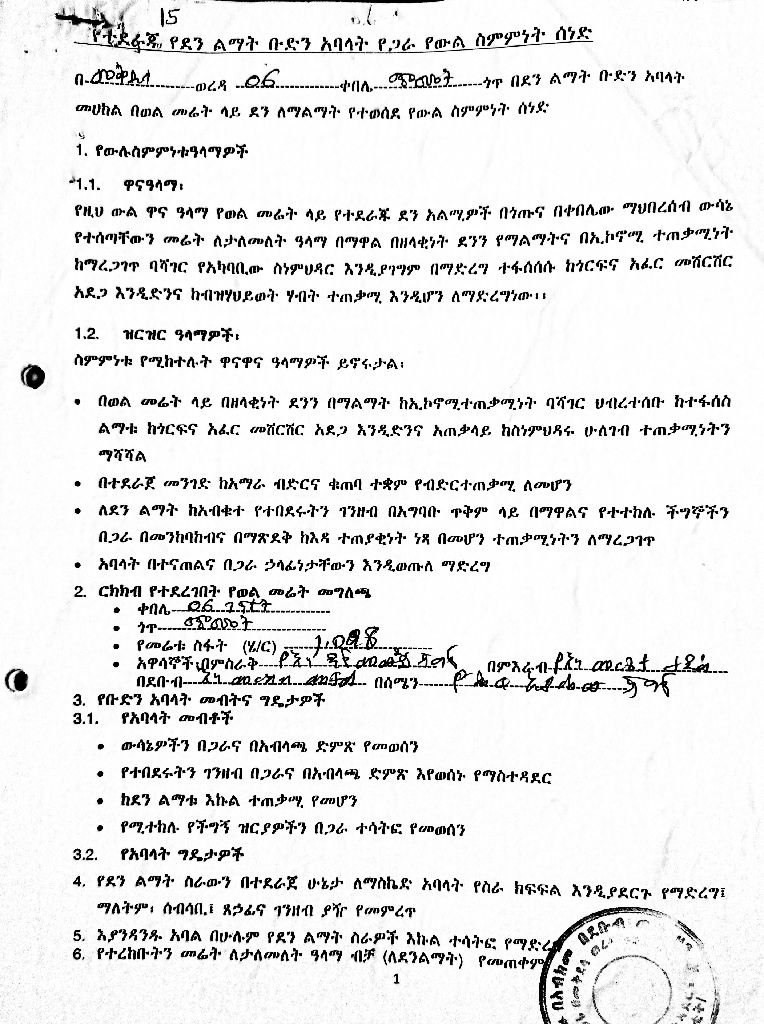 15
የተደራጁ የደን ልማት ቡድን አባላት የጋራ የውል ስምምነት ሰነድ
በ መቅደላ ወረዳ 06 ቀበሌ ጎጥ በደን ልማት ቡድን አባላት
መሀከል በወል መሬት ላይ ደን ለማልማት የተወሰደ የውል ስምምነት ሰነድ
1. የውሉስምምነቱዓላማዎች
1.1. ዋናዓላማ፡
የዚህ ውል ዋና ዓላማ የወል መሬት ላይ የተደራጁ ደን አልሚዎች በጎጡና በቀበሌው ማህበረሰብ ውሳኔ
የተሰጣቸውን መሬት ለታለመለት ዓላማ በማዋል በዘላቂነት ደንን የማልማትና በኢኮኖሚ ተጠቃሚነት
ከማረጋገጥ ባሻገር የአካባቢው ስነምህዳር እንዲያገግም በማድረግ ተፋሰሱ ከጎርፍና አፈር መሸርሸር
አደጋ እንዲድንና ከብዝሃህይወት ሃብት ተጠቃሚ እንዲሆን ለማድረግነው፡፡
1.2. ዝርዝር ዓላማዎች፡
ስምምነቱ የሚከተሉት ዋናዋና ዓላማዎች ይኖሩታል፡
• በወል መሬት ላይ በዘላቂነት ደንን በማልማት ከኢኮኖሚተጠቃሚነት ባሻገር ህብረተሰቡ ከተፋሰስ
ልማቱ ከጎርፍና አፈር መሸርሸር አደጋ እንዲድንና አጠቃላይ ከስነምህዳሩ ሁለገብ ተጠቃሚነትን
ማሻሻል
• በተደራጀ መንገድ ከአማራ ብድርና ቁጠባ ተቋም የብድርተጠቃሚ ለመሆን
• ለደን ልማት ከአብቁተ የተበደሩትን ገንዘብ በአግባቡ ጥቅም ላይ በማዋልና የተተከሉ ችግኞችን
በጋራ በመንከባከብና በማጽደቅ ከእዳ ተጠያቂነት ነጻ በመሆን ተጠቃሚነትን ለማረጋገጥ
• አባላት በተናጠልና በጋራ ኃላፊነታቸውን እንዲወጡለ ማድረግ
2. ርክክብ የተደረገበት የወል መሬት መግለጫ
• ቀበሌ 06
• ጎጥ
• የመሬቱ ስፋት (ሄ/ር)
• አዋሳኞች፡በምስራቅ በምእራብ
በደቡብ በሰሜን
3. የቡድን አባላት መብትና ግዴታዎች
3.1. የአባላት መብቶች
• ውሳኔዎችን በጋራና በአብላጫ ድምጽ የመወሰን
• የተበደሩትን ገንዘብ በጋራና በአብላጫ ድምጽ እየወሰኑ የማስተዳደር
• ከደን ልማቱ እኩል ተጠቃሚ የመሆን
• የሚተከሉ የችግኝ ዝርያዎችን በጋራ ተሳትፎ የመወሰን
3.2. የአባላት ግዴታዎች
4. የደን ልማት ስራውን በተደራጀ ሁኔታ ለማስኬድ አባላት የስራ ክፍፍል እንዲያደርጉ የማድረግ፤
ማለትም፡ ሰብሳቢ፤ ጸኃፊና ገንዘብ ያዥ የመምረጥ
5. እያንዳንዱ አባል በሁሉም የደን ልማት ስራዎች እኩል ተሳትፎ የማድረ
6. የተረከቡትን መሬት ለታለመለት ዓላማ ብቻ (ለደንልማት) የመጠቀም
1